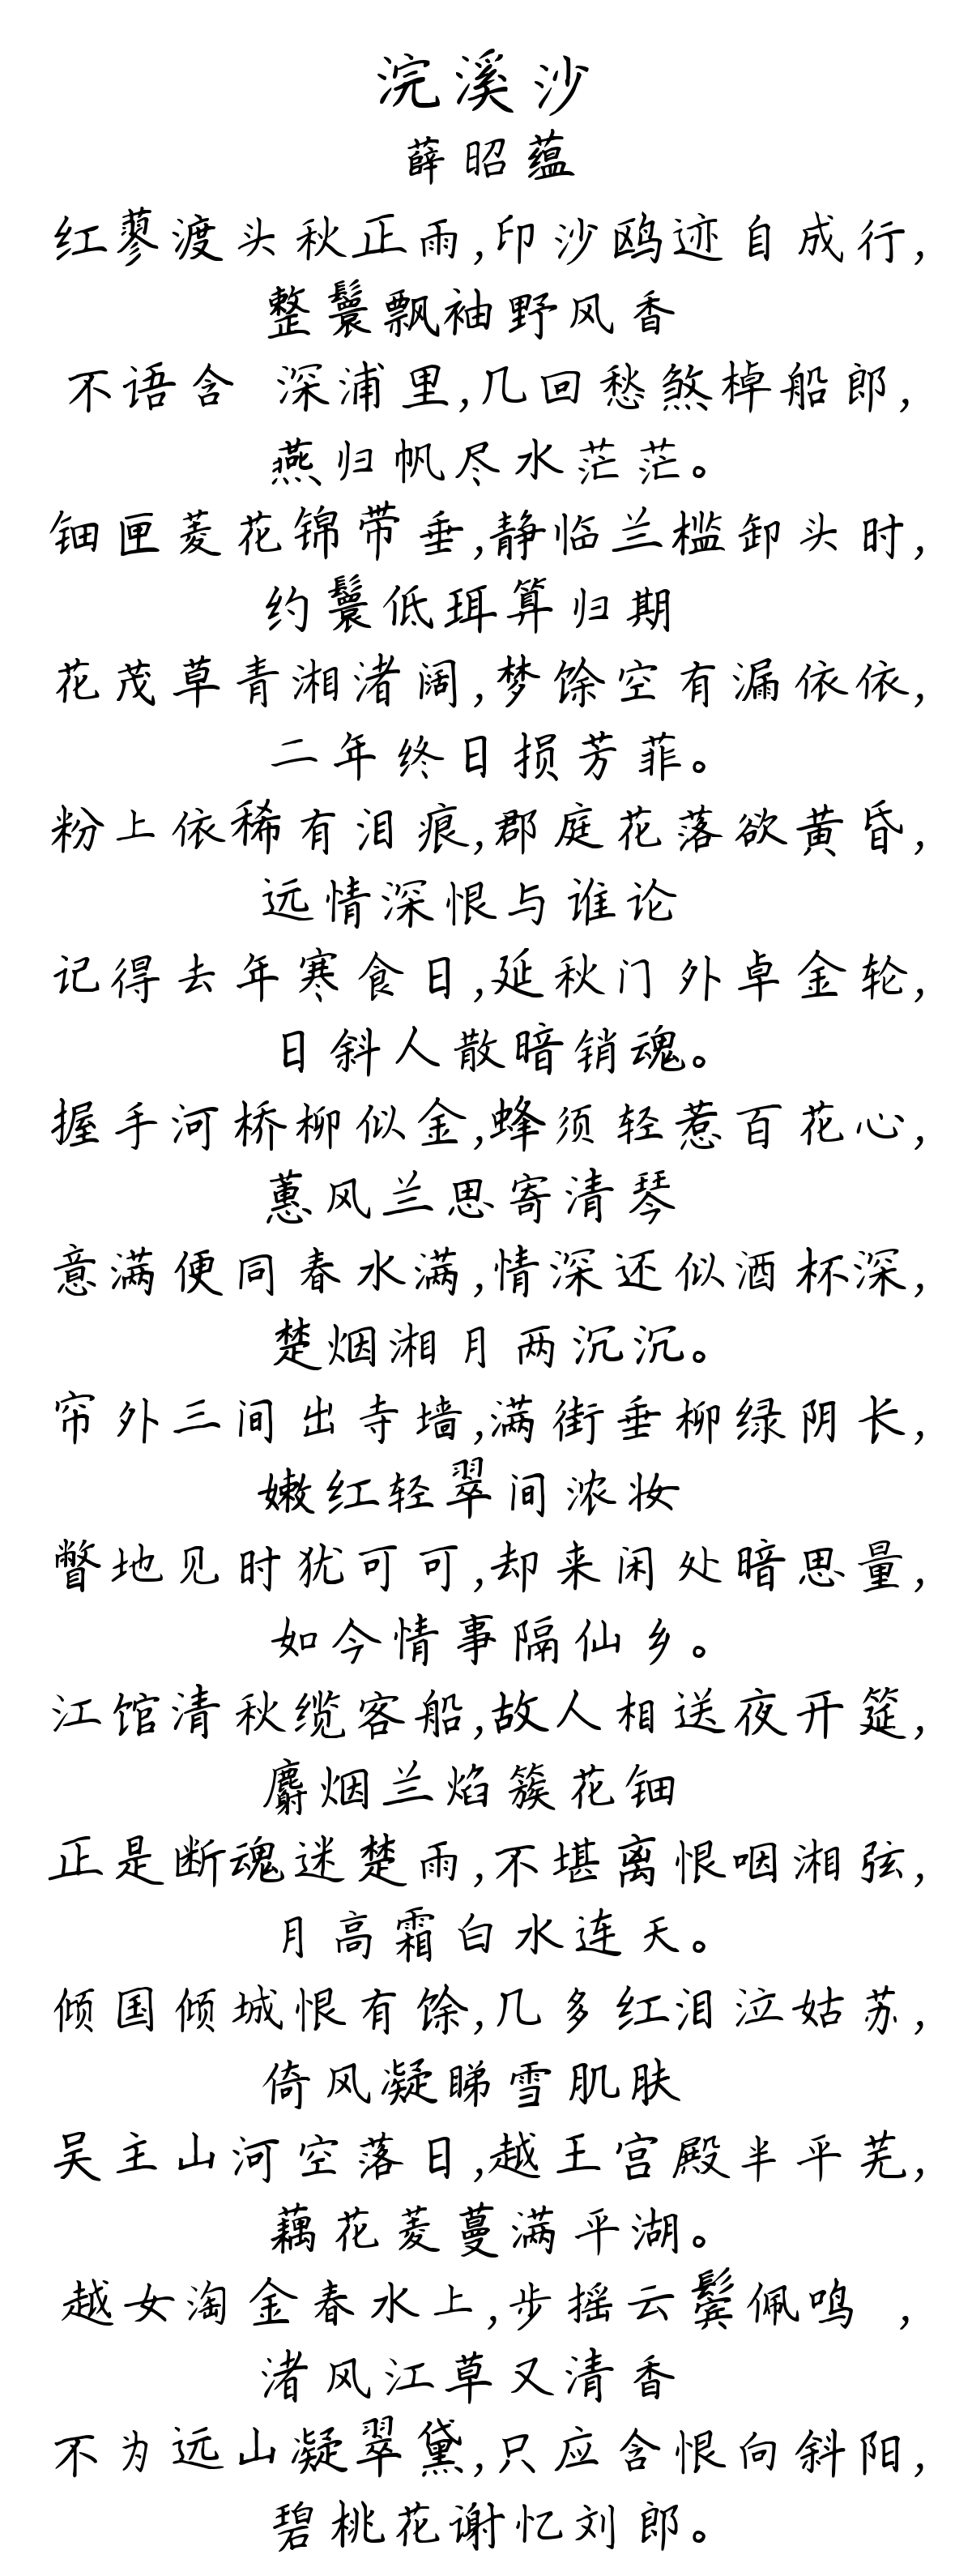 浣溪沙
薛昭蕴
红蓼渡头秋正雨,印沙鸥迹自成行,
整鬟飘袖野风香
不语含 深浦里,几回愁煞棹船郎,
燕归帆尽水茫茫。
钿匣菱花锦带垂,静临兰槛卸头时,
约鬟低珥算归期
花茂草青湘渚阔,梦馀空有漏依依,
二年终日损芳菲。
粉上依稀有泪痕,郡庭花落欲黄昏,
远情深恨与谁论
记得去年寒食日,延秋门外卓金轮,
日斜人散暗销魂。
握手河桥柳似金,蜂须轻惹百花心,
蕙风兰思寄清琴
意满便同春水满,情深还似酒杯深,
楚烟湘月两沉沉。
帘外三间出寺墙,满街垂柳绿阴长,
嫩红轻翠间浓妆
瞥地见时犹可可,却来闲处暗思量,
如今情事隔仙乡。
江馆清秋缆客船,故人相送夜开筵,
麝烟兰焰簇花钿
正是断魂迷楚雨,不堪离恨咽湘弦,
月高霜白水连天。
倾国倾城恨有馀,几多红泪泣姑苏,
倚风凝睇雪肌肤
吴主山河空落日,越王宫殿半平芜,
藕花菱蔓满平湖。
越女淘金春水上,步摇云鬓佩鸣 ,
渚风江草又清香
不为远山凝翠黛,只应含恨向斜阳,
碧桃花谢忆刘郎。